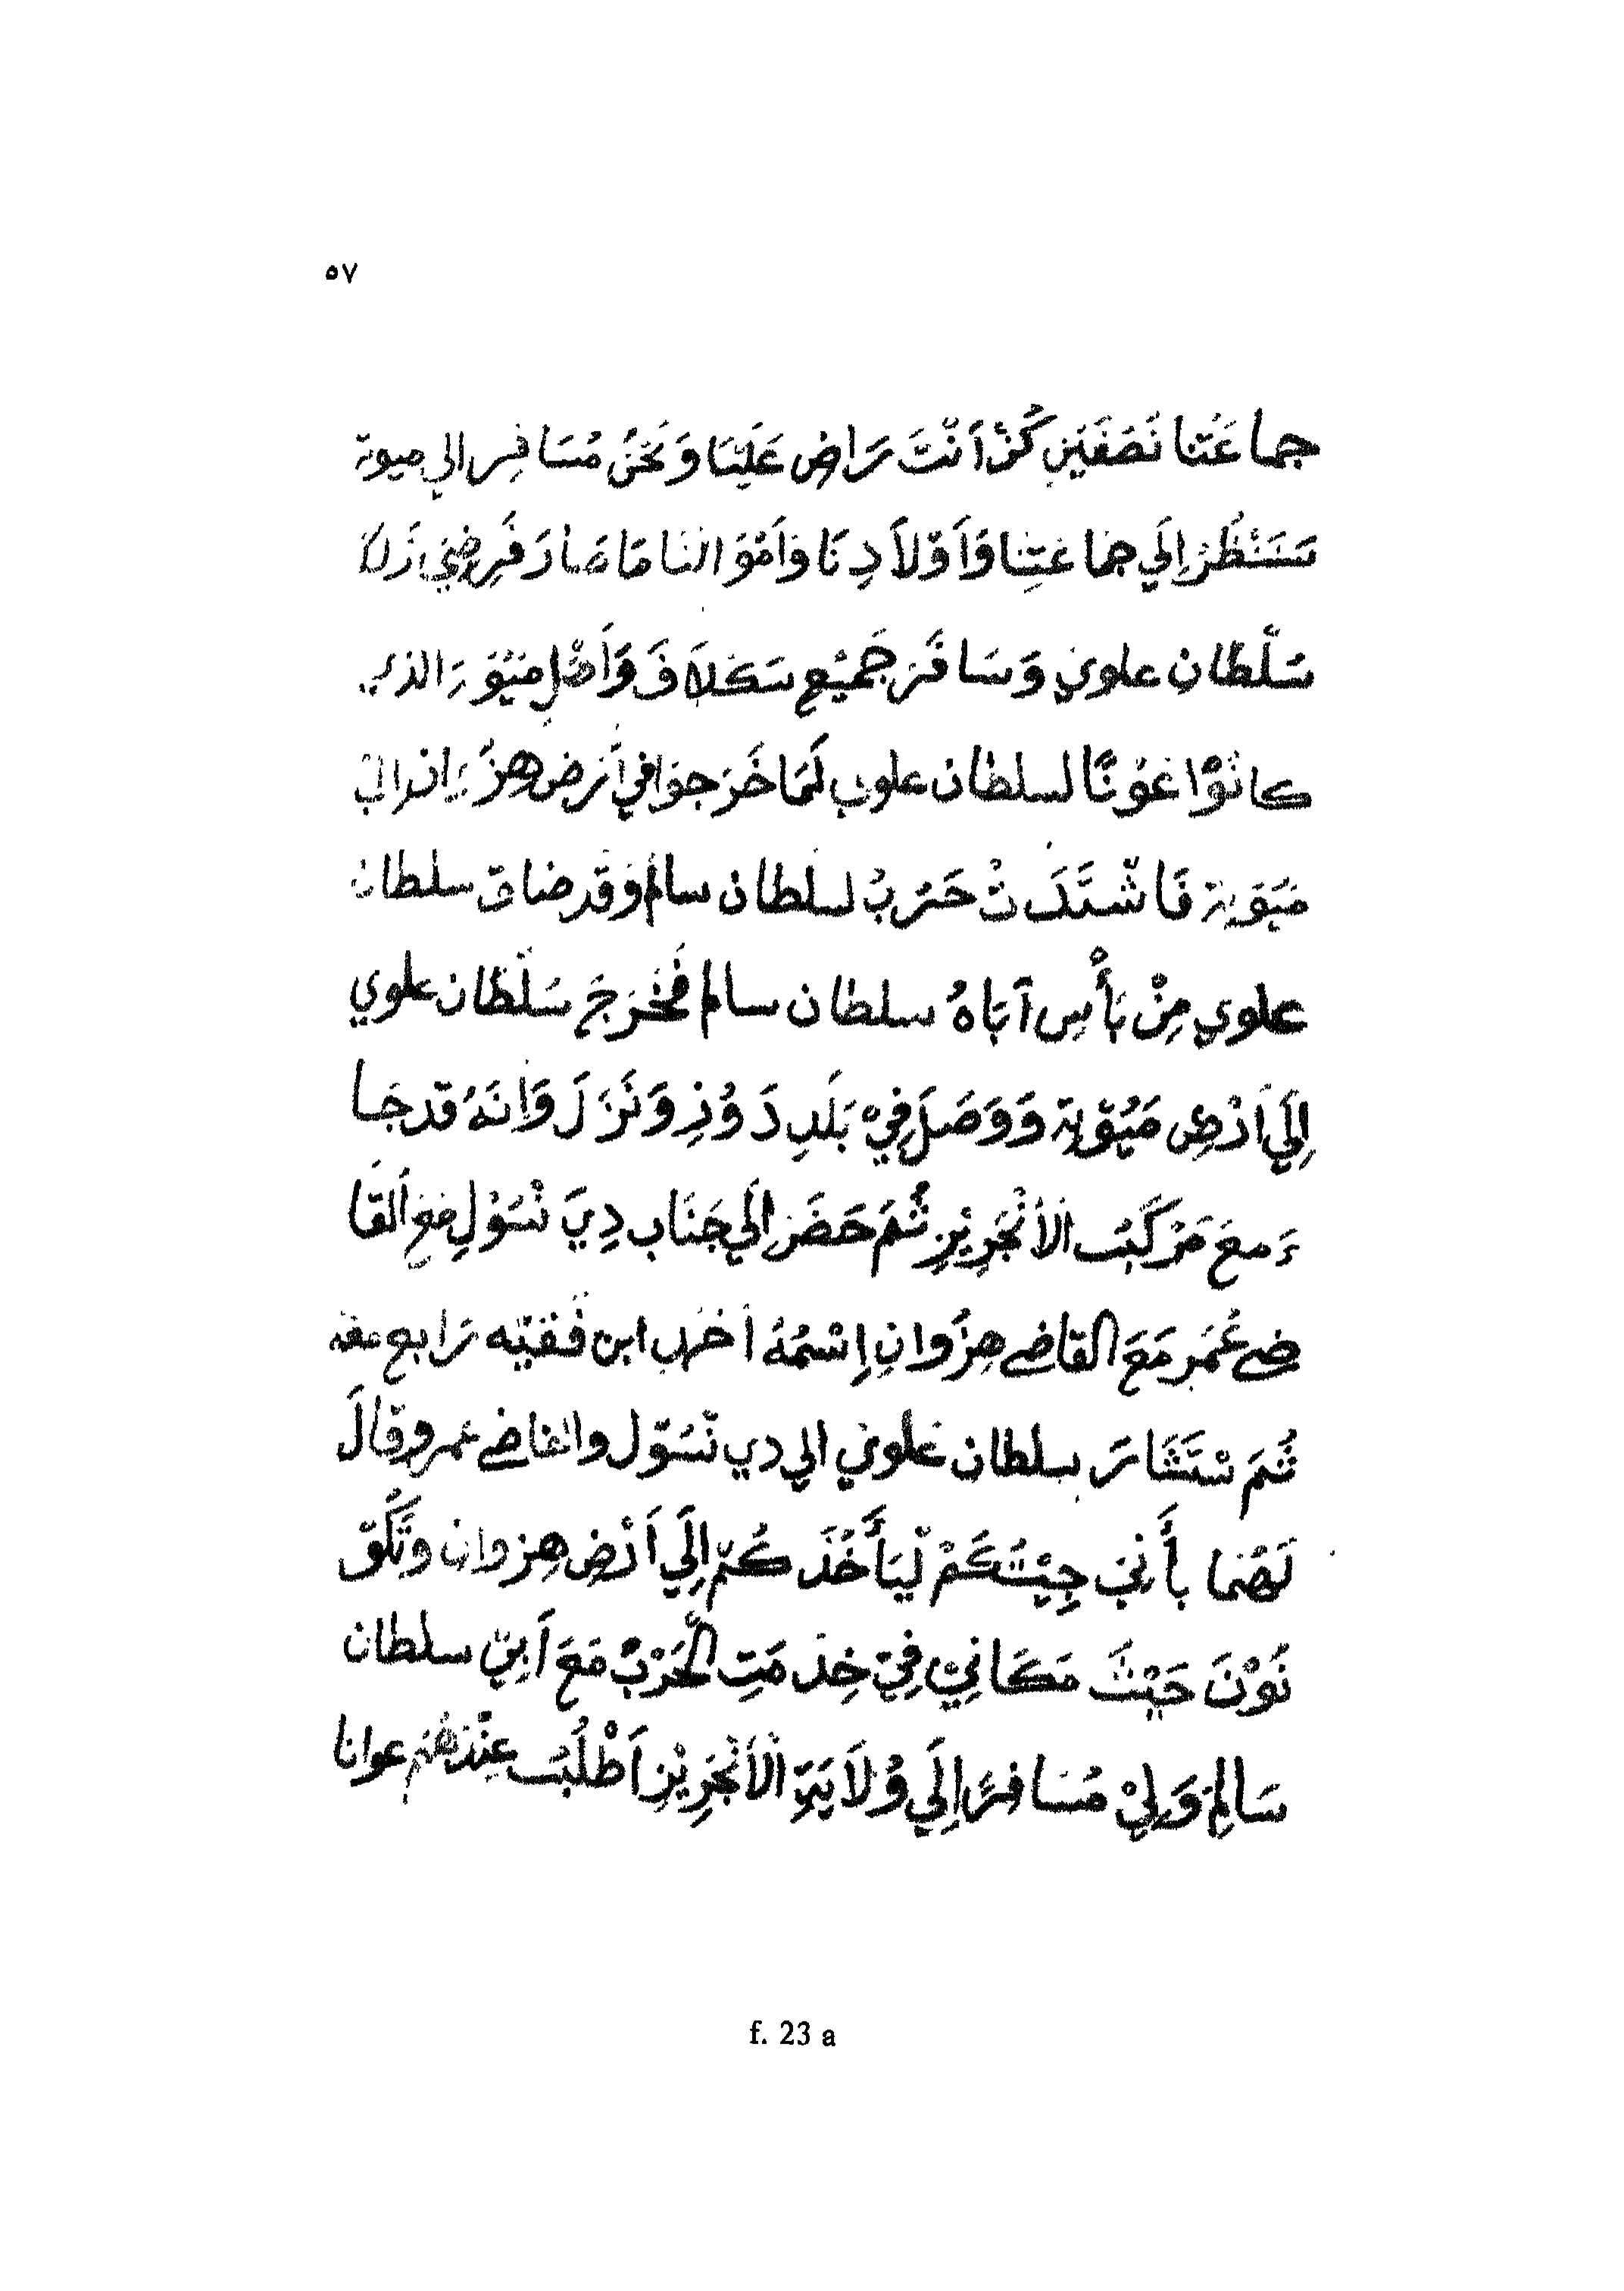 ٥٧
جماعَتنا نَصَفَيَنِ كُنْ اَنْتَ رَاضِ عَلَيْنَا وَ نَحْنُ مُسَافِر الي ميوتة
سَنَنْظُرُ اِلَي جَمَاعَتِنَا وَاَوْلاَدِنَا وَاَمْوَالنَا مَا صَارَ فَرِضِيَ ذٰلك
سُلْطَانِ علوي وَسَافَرَ جَمِيْع سَكَلاَفَ وَاَهْلِ مَيُوْتَ الذي
كانُوْا عَوْنًا لسلطان علوي لَمَا خَرَجوَا في اَرض هِزْوَان الي
مَيُوَتة فَاشْتَدَتْ حَرْبُ لسلطان سالم وَقد ضاق سلطان
علوي مِنْ بَأْسِ اَبَاهُ سلطان سالم فَخَرَجَ سُلْطان علوي
اِلَي اَرْضِ مَيُوْتة وَوَصَلَ فِيْ بَلَدِ دَوُذِ وَنَزَلَ وَاَنَهُ قد جَا
ءَ معَ مَرْكَبُ الاَنْجَرِيْزِ ثُمَ حَضَرَ اِلَي جَنَاب دِيَ نْسُوْلِ مَع اَلقَا
ضي عُمَر مَعَ القاضي هِزْوَانِ اِسْمُهُ اَحمَد ابن فَقيْه رَابع معه
ثُمَ سْتَشَارَ سلطان علوي الي دي نْسُوْل والقاضي عمر وقَالَ
لَهُمَا بأَني جِيْتُكَمْ لِيَأْخُذَ كُمْ اِلَي اَرْضِ هِزوان وتَكُوْ
نُوْنَ حَيْثَ مَكَانِيْ فِيْ خِدْمَتِ الْحَرْبُ مَعَ اَبِيْ سلطان
سَالِمْ وَلِيْ مُسَافِرًا اِلَي وُلاَيَةِ الْاَنْجَرِيْزِ اَطْلُبُ عِنْدَهُمْ عوانا
f. 23 a